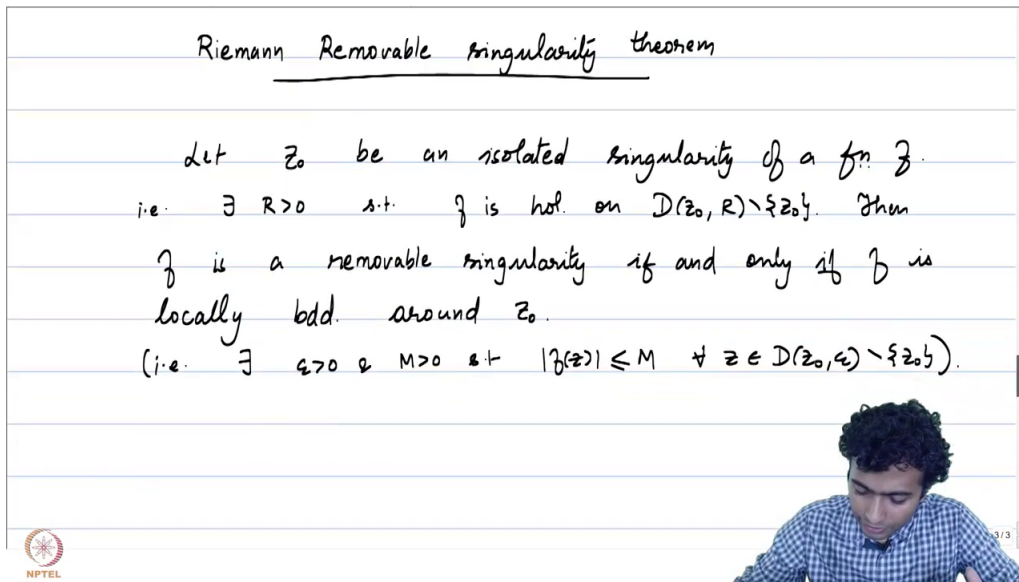 Riemann Removable singularity theorem
Let z₀ be an isolated singularity of a fn. f.
i.e. ∃ R>0 s.t. f is hol. on D(z₀, R)\{z₀}. Then
f is a removable singularity if and only if f is
locally bdd. around z₀.
(i.e. ∃ ε>0 & M>0 s.t |f(z)| ≤ M ∀ z ∈ D(z₀, ε)\{z₀}).
3/3
NPTEL